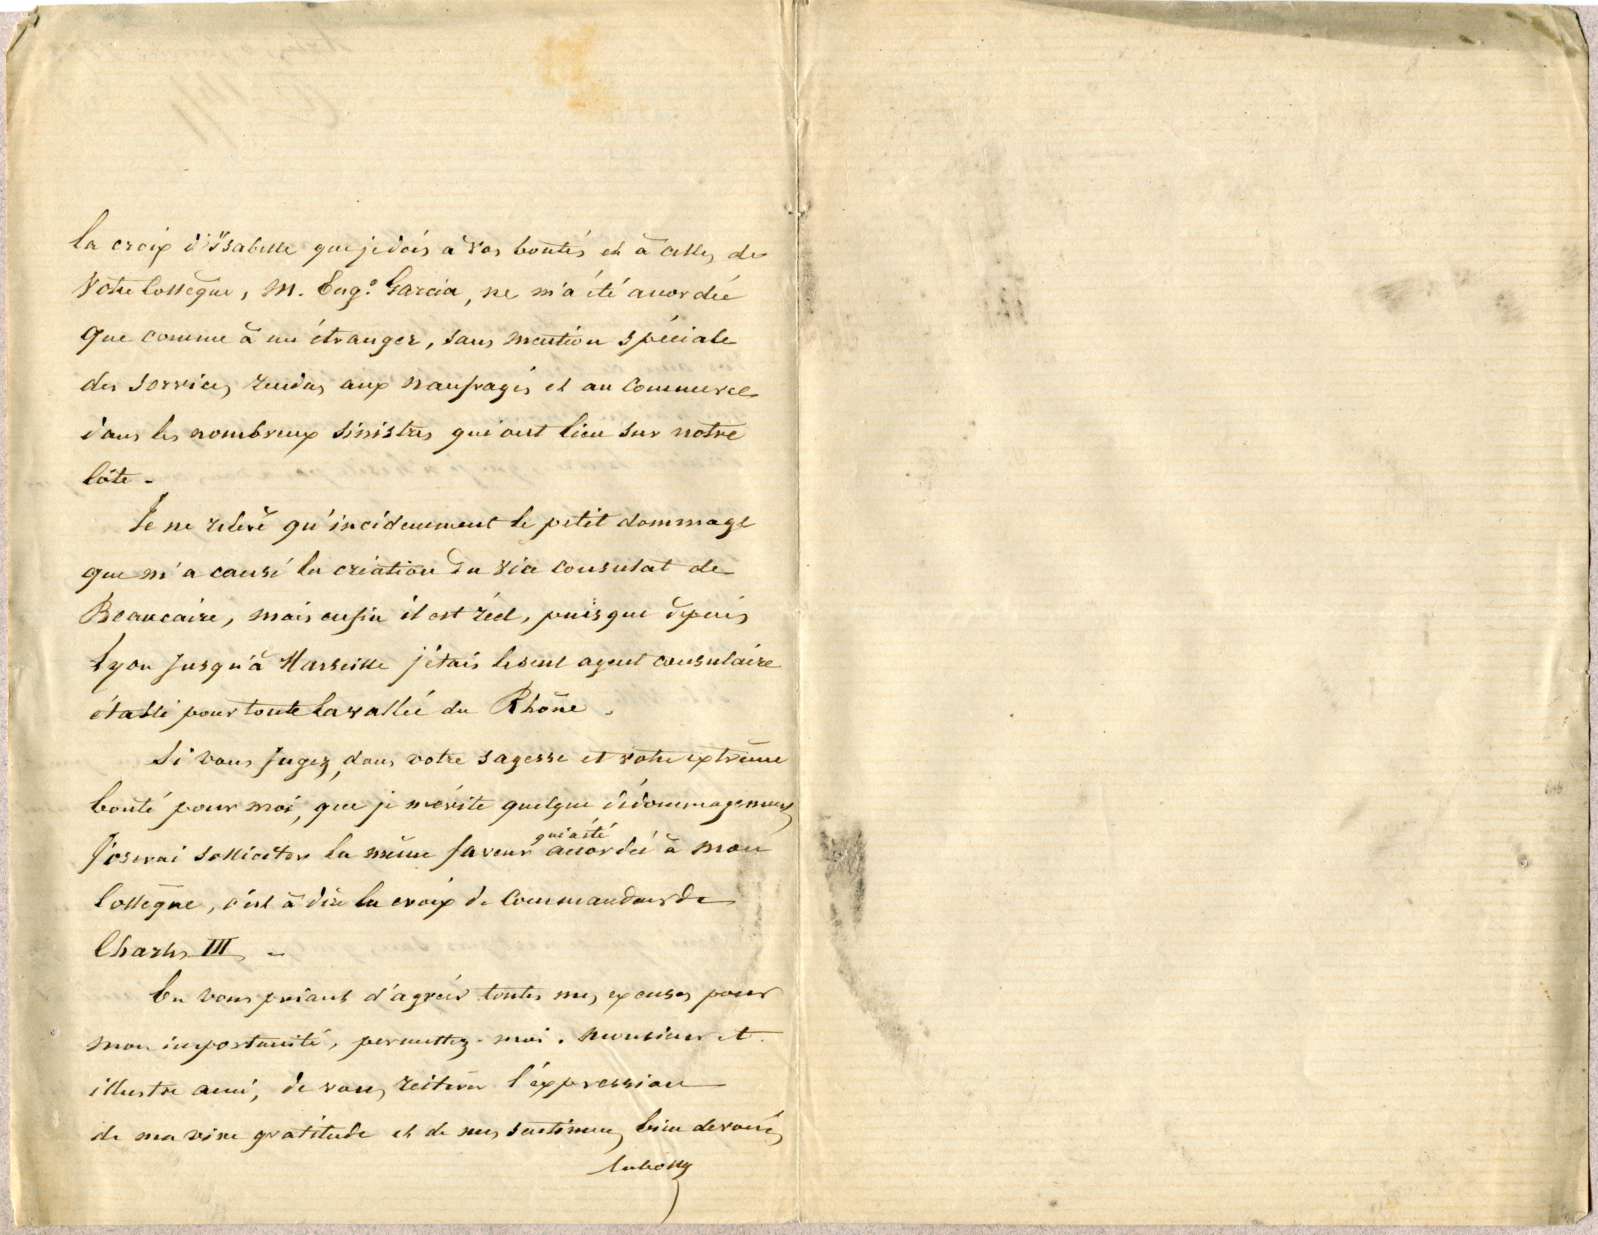 la croix d'Isabelle que je dois à vos bontés et à celles de
votre collègue, M. Eugº Garcia, ne m'a été accordée
que comme à un étranger, sans mention spéciale
des services rendus aux naufragés et au commerce
dans les nombreux sinistres qui ont lieu sur notre
Côte.
Je ne relève qu'incidemment le petit dommage
que m'a causé la création du vice consulat de
Beaucaire, mais enfin il est réel, puisque depuis
Lyon jusqu'à Marseille j'étais le seul agent consulaire
établi pour toute la vallée du Rhône.
Si vous jugez, dans votre sagesse et votre extrême
bonté pour moi, que je mérite quelque dédommagement
j'oserai solliciter la même faveur qui a été accordée à mon
Collègue, c'est à dire la croix de Commandeur de
Charles III -
En vous priant d'agréer toutes mes excuses pour
mon importunité, permettez-moi, monsieur et
illustre ami, de vous réitérer l'expression
de ma vive gratitude et de mes sentimens bien dévoués